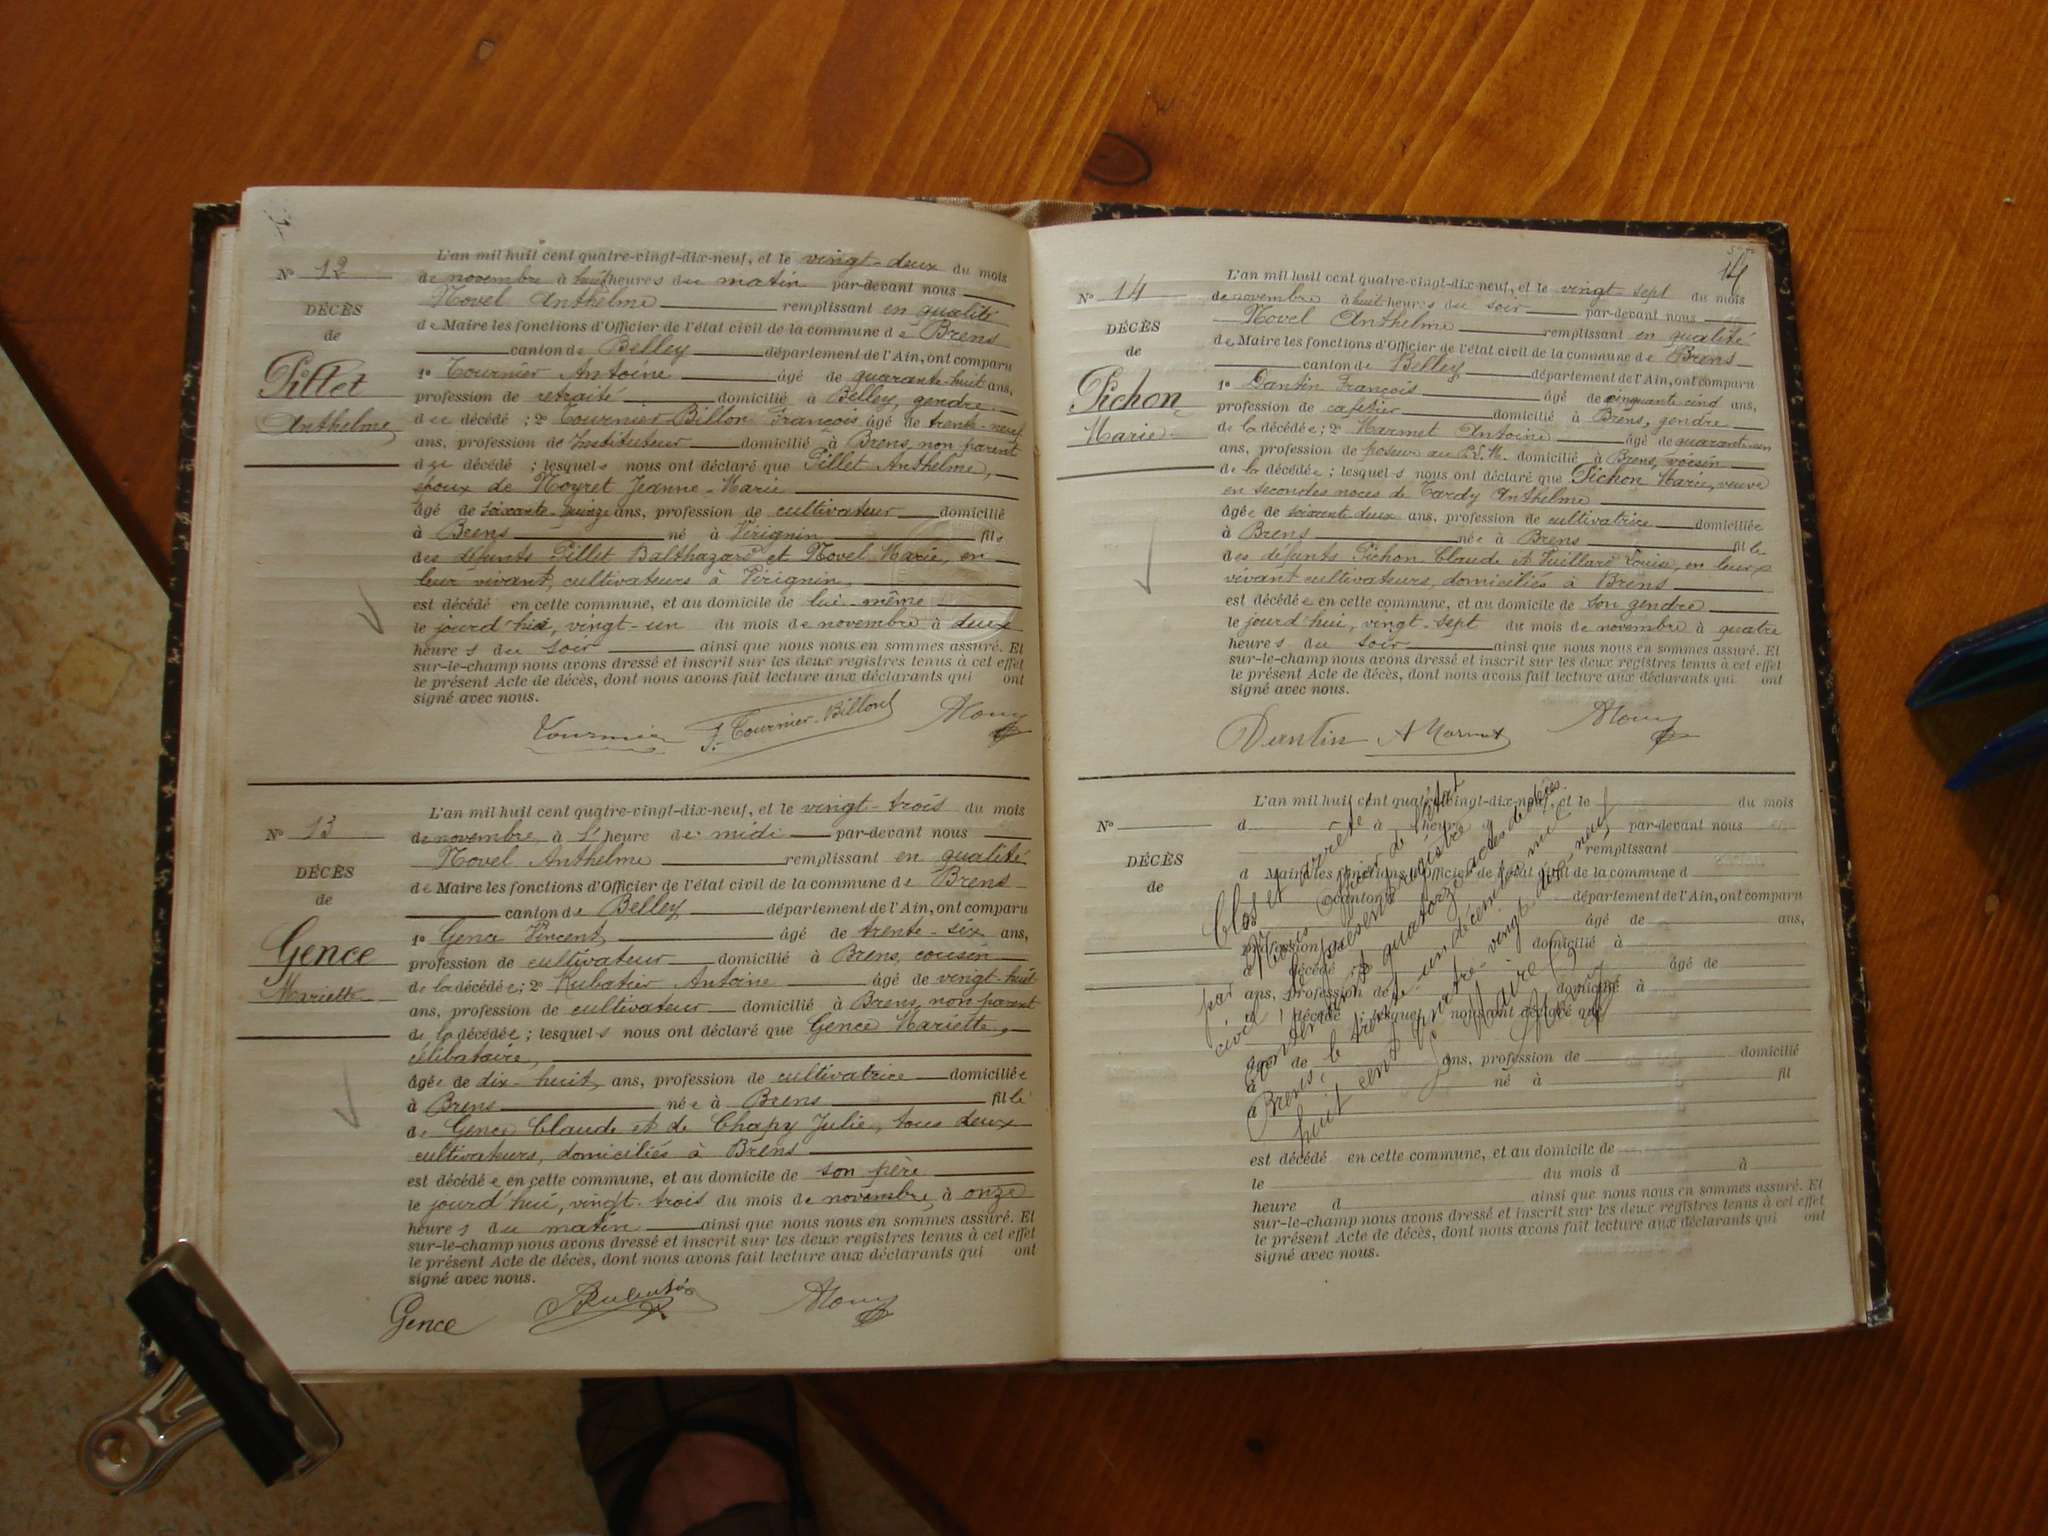 L'an mil huit cent quatre-vingt-dix-neuf, et le vingt-deux du mois
No 12
de novembre à huit heures du matin par-devant nous
Novel Anthelme remplissant en qualité
DÉCÈS
de Maire les fonctions d'Officier de l'état civil de la commune de Brens
de
canton de Belley département de l'Ain, ont comparu
Pillet
1o Tournier Antoine âgé de quarante-huit ans,
profession de retraité domicilié à Belley, gendre
Anthelme
du décédé ; 2o Tournier Billon François âgé de trente-neuf
ans, profession de Instituteur domicilié à Brens, non parent
du décédé ; lesquels nous ont déclaré que Pillet Anthelme,
époux de Noyret Jeanne-Marie
âgé de soixante-quinze ans, profession de cultivateur domicilié
à Brens né à Virignin fils
des défunts Pillet Balthazard et Novel Marie, en
leur vivant, cultivateurs à Virignin,
est décédé en cette commune, et au domicile de lui-même
le jourd'hui, vingt-un du mois de novembre à deux
heures du soir ainsi que nous nous en sommes assuré. Et
sur-le-champ nous avons dressé et inscrit sur les deux registres tenus à cet effet
le présent Acte de décès, dont nous avons fait lecture aux déclarants qui ont
signé avec nous.
Tournier F. Tournier-Billon
L'an mil huit cent quatre-vingt-dix-neuf, et le vingt-trois du mois
No 13
de novembre à l'heure de midi par-devant nous
Novel Anthelme remplissant en qualité
DÉCÈS
de Maire les fonctions d'Officier de l'état civil de la commune de Brens
de
canton de Belley département de l'Ain, ont comparu
Gence
1o Gence Vincent, âgé de trente-six ans,
profession de cultivateur domicilié à Brens, cousin
Mariette
de la décédée ; 2o Rubatier Antoine âgé de vingt-huit
ans, profession de cultivateur domicilié à Brens, non parent
de la décédée ; lesquels nous ont déclaré que Gence Mariette,
célibataire,
âgée de dix-huit ans, profession de cultivatrice domiciliée
à Brens née à Brens fille
de Gence Claude et de Chapy Julie, tous deux
cultivateurs, domiciliés à Brens
est décédée en cette commune, et au domicile de son père
le jourd'hui, vingt-trois du mois de novembre, à onze
heures du matin ainsi que nous nous en sommes assuré. Et
sur-le-champ nous avons dressé et inscrit sur les deux registres tenus à cet effet
le présent Acte de décès, dont nous avons fait lecture aux déclarants qui ont
signé avec nous.
Gence
14
L'an mil huit cent quatre-vingt-dix-neuf, et le vingt-sept du mois
No 14
de novembre à huit heures du soir par-devant nous
Novel Anthelme remplissant en qualité
DÉCÈS
de Maire les fonctions d'Officier de l'état civil de la commune de Brens
de
canton de Belley département de l'Ain, ont comparu
Pichon
1o Dantin François âgé de cinquante-cinq ans,
profession de cafetier domicilié à Brens, gendre
Marie
de la décédée ; 2o Marmet Antoine âgé de quarante-un
ans, profession de poseur au P.L.M. domicilié à Brens, voisin
de la décédée ; lesquels nous ont déclaré que Pichon Marie, veuve
en secondes noces de Tardy Anthelme
âgée de soixante-deux ans, profession de cultivatrice domiciliée
à Brens née à Brens fille
des défunts Pichon Claude et Vuillard Louise, en leur
vivant cultivateurs, domiciliés à Brens
est décédée en cette commune, et au domicile de son gendre
le jourd'hui, vingt-sept du mois de novembre à quatre
heures du soir ainsi que nous nous en sommes assuré. Et
sur-le-champ nous avons dressé et inscrit sur les deux registres tenus à cet effet
le présent Acte de décès, dont nous avons fait lecture aux déclarants qui ont
signé avec nous.
Dantin A Marmet
L'an mil huit cent quatre-vingt-dix-neuf, et le du mois
No d à heure d par-devant nous
remplissant
DÉCÈS
d Maire les fonctions d'Officier de l'état civil de la commune d
de
canton d département de l'Ain, ont comparu
âgé de ans,
profession domicilié à
décédé âgé de
ans, profession de domicilié à
décédé ; lesquels nous ont déclaré que
âgé de ans, profession de domicilié
à né à fil
Clos et arrêté
par Nous officier de l'état
civil le présent registre
contenant quatorze actes de décès
Brens, le trente-un décembre mil
huit cent quatre-vingt-dix-neuf
Le Maire
est décédé en cette commune, et au domicile de
le du mois d à
heure d ainsi que nous nous en sommes assuré. Et
sur-le-champ nous avons dressé et inscrit sur les deux registres tenus à cet effet
le présent Acte de décès, dont nous avons fait lecture aux déclarants qui ont
signé avec nous.